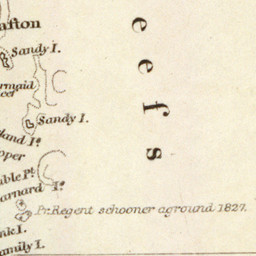 afton
Sandy I.
eefs
Sandy I.
land Is
pper
ble Pt.
arnard Is
Pr. Regent schooner aground 1827.
nk I.
amily I.